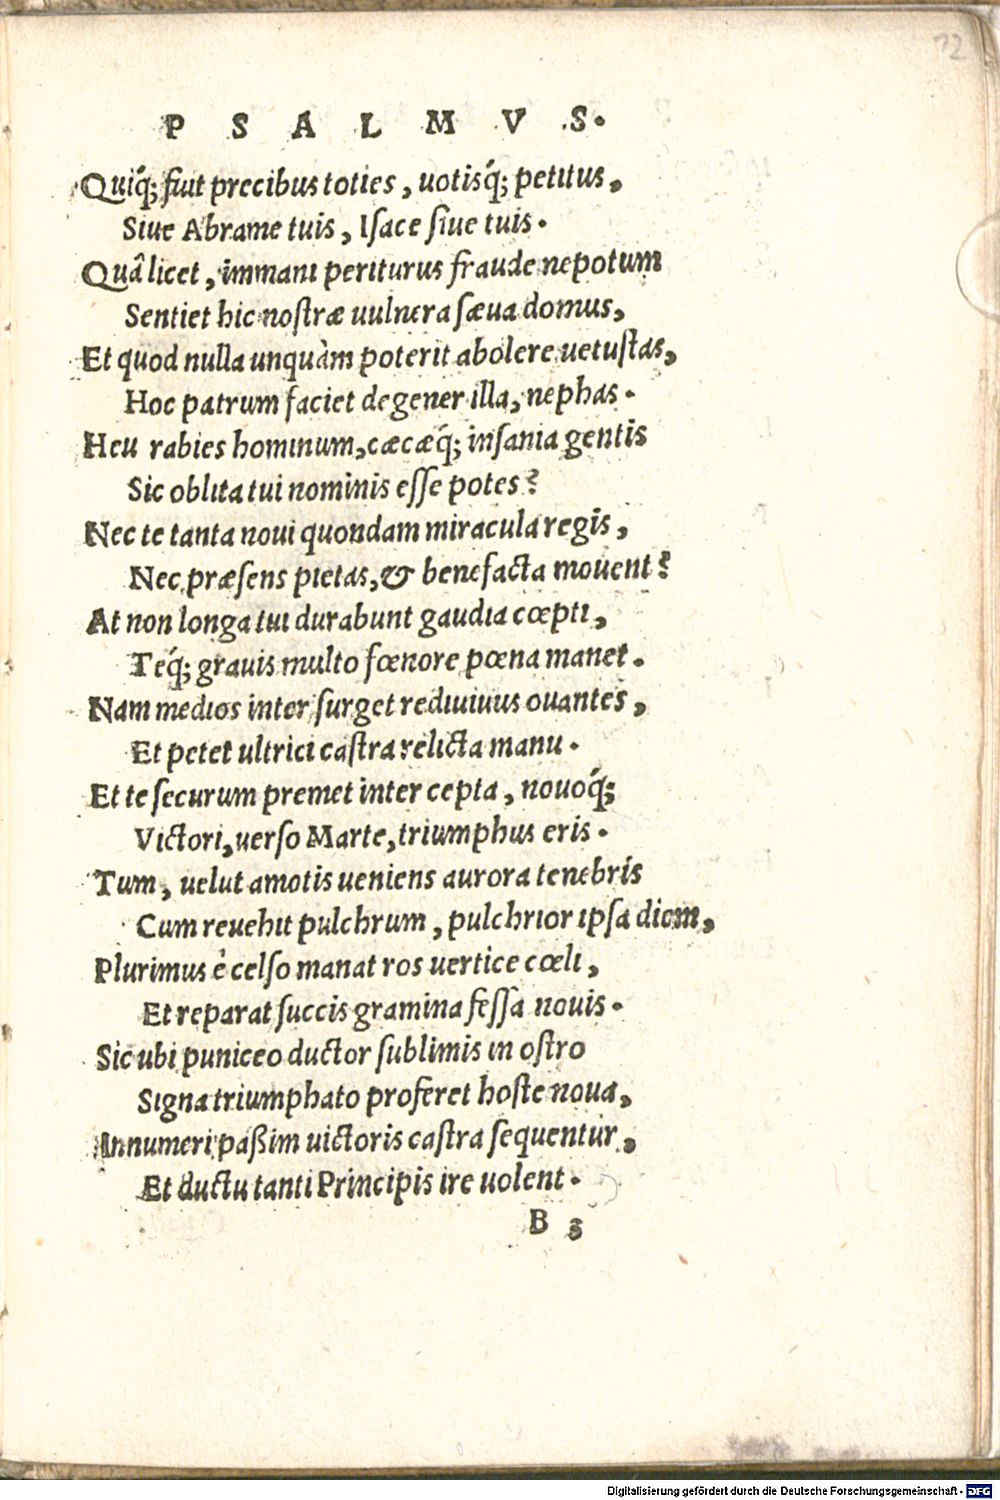 12
P S A L M V S.
Quiq́; fuit precibus toties, uotisq́; petitus,
Siue Abrame tuis, Isace siue tuis.
Quâ licet, immani periturus fraude nepotum
Sentiet hic nostræ uulnera sæua domus,
Et quod nulla unquàm poterit abolere uetustas,
Hoc patrum faciet degener illa, nephas.
Heu rabies hominum, cæcæq́; insania gentis
Sic oblita tui nominis esse potes?
Nec te tanta noui quondam miracula regis,
Nec præsens pietas, & benefacta mouent?
At non longa tui durabunt gaudia cœpti,
Teq́; grauis multo fœnore pœna manet.
Nam medios inter surget rediuiuus ouantes,
Et petet ultrici castra relicta manu.
Et te securum premet intercepta, nouoq́;
Victori, uerso Marte, triumphus eris.
Tum, uelut amotis ueniens aurora tenebris
Cum reuehit pulchrum, pulchrior ipsa diem,
Plurimus è celso manat ros uertice cœli,
Et reparat succis gramina fessa nouis.
Sic ubi puniceo ductor sublimis in ostro
Signa triumphato proferet hoste noua,
Annumeri paßim uictoris castra sequentur,
Et ductu tanti Principis ire uolent.
B 3
Digitalisierung gefördert durch die Deutsche Forschungsgemeinschaft - DFG